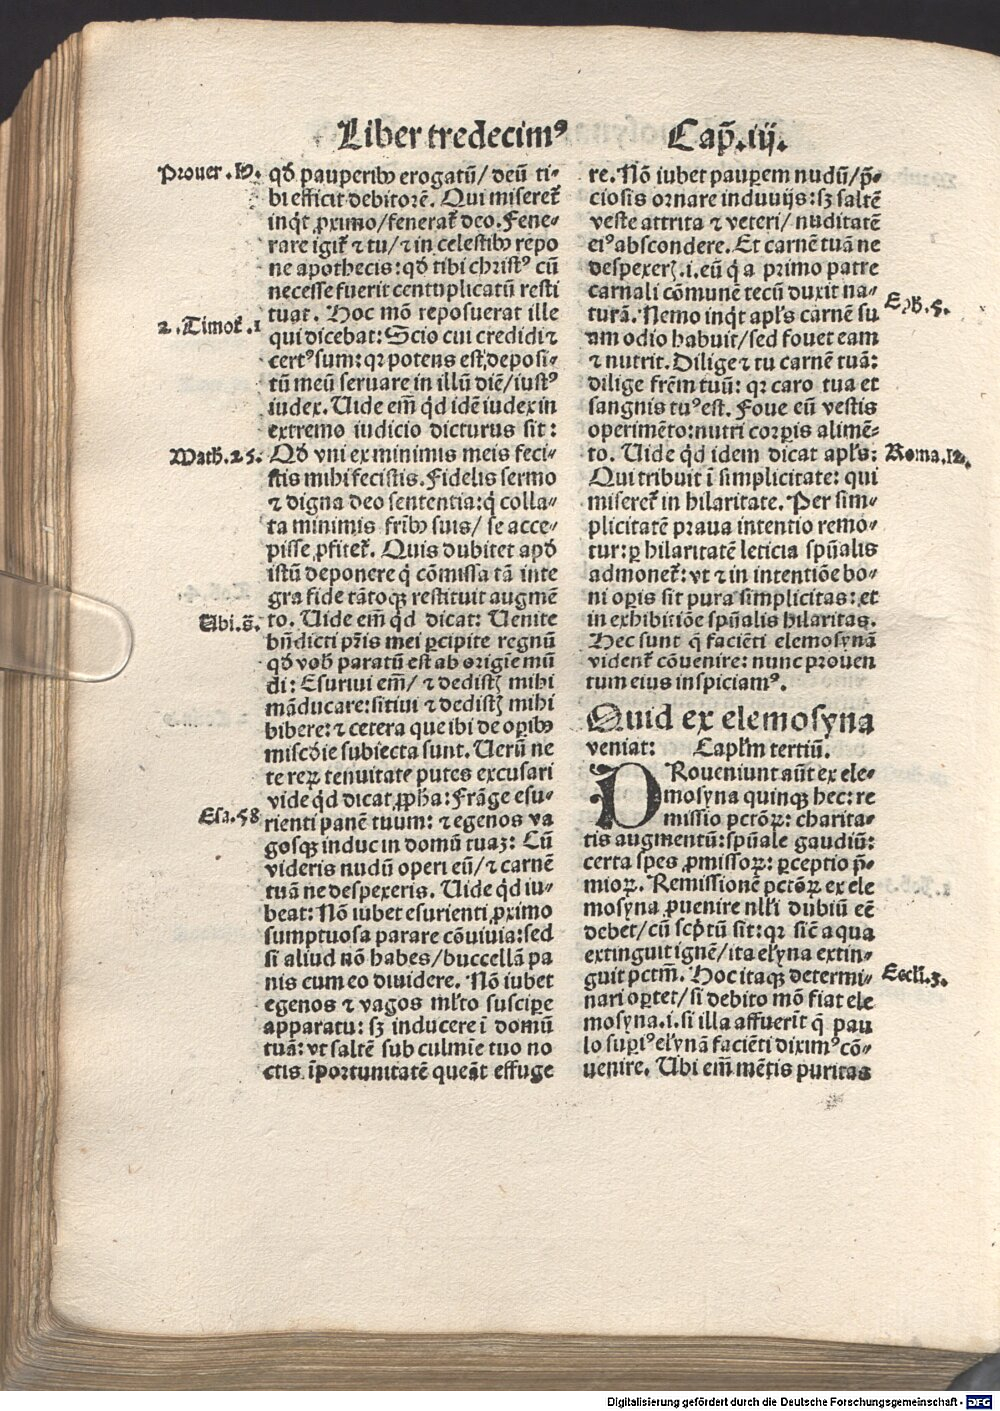 Liber tredecimꝰ Cap̃.iij.
Prouer.19.
qđ pauperibꝰ erogatū/deū ti⸗
bi efficit debitorē. Qui miseret᷑
inq̇t ꝓximo/fenerat᷑ deo. Fene⸗
rare igit᷑ ⁊ tu/⁊ in celestibꝰ repo
ne apothecis:qđ tibi christꝰ cū
necesse fuerit centuplicatū resti
tuat. Hoc mō reposuerat ille
2.Timot᷑.1
qui dicebat: Scio cui credidi ⁊
certꝰ sum: qꝛ potens est,deposi⸗
tū meū seruare in illū diē/iustꝰ
iudex. Uide em̄ qđ idē iudex in
extremo iudicio dicturus sit:
Math.25.
Qđ vni ex minimis meis feci⸗
stis mihi fecistis. Fidelis sermo
⁊ digna deo sententia:q̇ colla⸗
ta minimis fribꝰ suis/ se acce⸗
pisse ꝓfitet᷑. Quis dubitet apđ
istū deponere q̇ cōmissa tā inte
gra fide tātoqꝫ restituit augmē
Ubi.s̄.
to. Uide em̄ qđ dicat: Uenite
bn̄dicti pr̄is mei ꝑcipite regnū
qđ vob̄ paratū est ab origīe mū
di: Esuriui em̄/ ⁊ dedistꝫ mihi
māducare:sitiui ⁊ dedistꝫ mihi
bibere: ⁊ cetera que ibi de oꝑibꝰ
miscd̄ie subiecta sunt. Uerū ne
te reꝝ tenuitate putes excusari
vide qđ dicat ꝓph̄a: Frāge esu⸗
Esa.58
rienti panē tuum: ⁊ egenos va
gosqꝫ induc in domū tuaꝫ: Cū
videris nudū operi eū/⁊ carnē
tuā ne despexeris. Uide qđ iu⸗
beat: Nō iubet esurienti ꝓximo
sumptuosa parare cōuiuia:sed
si aliud nō habes/buccellā pa
nis cum eo diuidere. Nō iubet
egenos ⁊ vagos ml̄to suscipe
apparatu: sꝫ inducere ī domū
tuā: vt saltē sub culmīe tuo no
ctis īportunitatē queāt effuge
re. Nō iubet pauꝑem nudū/p̄⸗
ciosis ornare induuijs: sꝫ saltē
veste attrita ⁊ veteri/ nuditatē
eiꝰ abscondere. Et carnē tuā ne
despexerꝭ.i.eū q̇ a primo patre
carnali cōmunē tecū duxit na⸗
Eph̄.5.
turā. Nemo inq̇t apl̄s carnē su
am odio habuit/sed fouet eam
⁊ nutrit. Dilige ⁊ tu carnē tuā:
dilige frēm tuū: qꝛ caro tua et
sangnis tuꝰ est. Foue eū vestis
operimēto:nutri corꝑis alimē⸗
to. Uide qđ idem dicat apl̄s:
Roma.12.
Qui tribuit ī simplicitate: qui
miseret᷑ in hilaritate. Per sim⸗
plicitatē praua intentio remo⸗
tur: ꝑ hilaritatē leticia spūalis
admonet᷑: vt ⁊ in intentiōe bo⸗
ni oꝑis sit pura simplicitas: et
in exhibitiōe spūalis hilaritas.
Hec sunt q̄ faciēti elemosynā
vident᷑ cōuenire: nunc prouen
tum eius inspiciamꝰ.
Quid ex elemosyna
veniat: Capl̄m tertiū.
PRoueniunt aūt ex ele⸗
mosyna quinqꝫ hec: re
missio pctōꝝ: charita⸗
tis augmentū: spūale gaudiū:
certa spes ꝓmissoꝝ: ꝑceptio p̄⸗
mioꝝ. Remissionē pctōꝝ ex ele
mosyna ꝓuenire nl̄li dubiū eē
debet/ cū sc̄ptū sit: qꝛ sic̄ aqua
extinguit ignē/ita elȳna extin⸗
Eccl̄i.3.
guit pctm̄. Hoc itaqꝫ determi⸗
nari oꝑtet/si debito mō fiat ele
mosyna.i.si illa affuerīt q̄ pau
lo suꝑiꝰ elȳnā faciēti diximꝰ cō⸗
uenire. Ubi em̄ mētis puritas
Digitalisierung gefördert durch die Deutsche Forschungsgemeinschaft - DFG